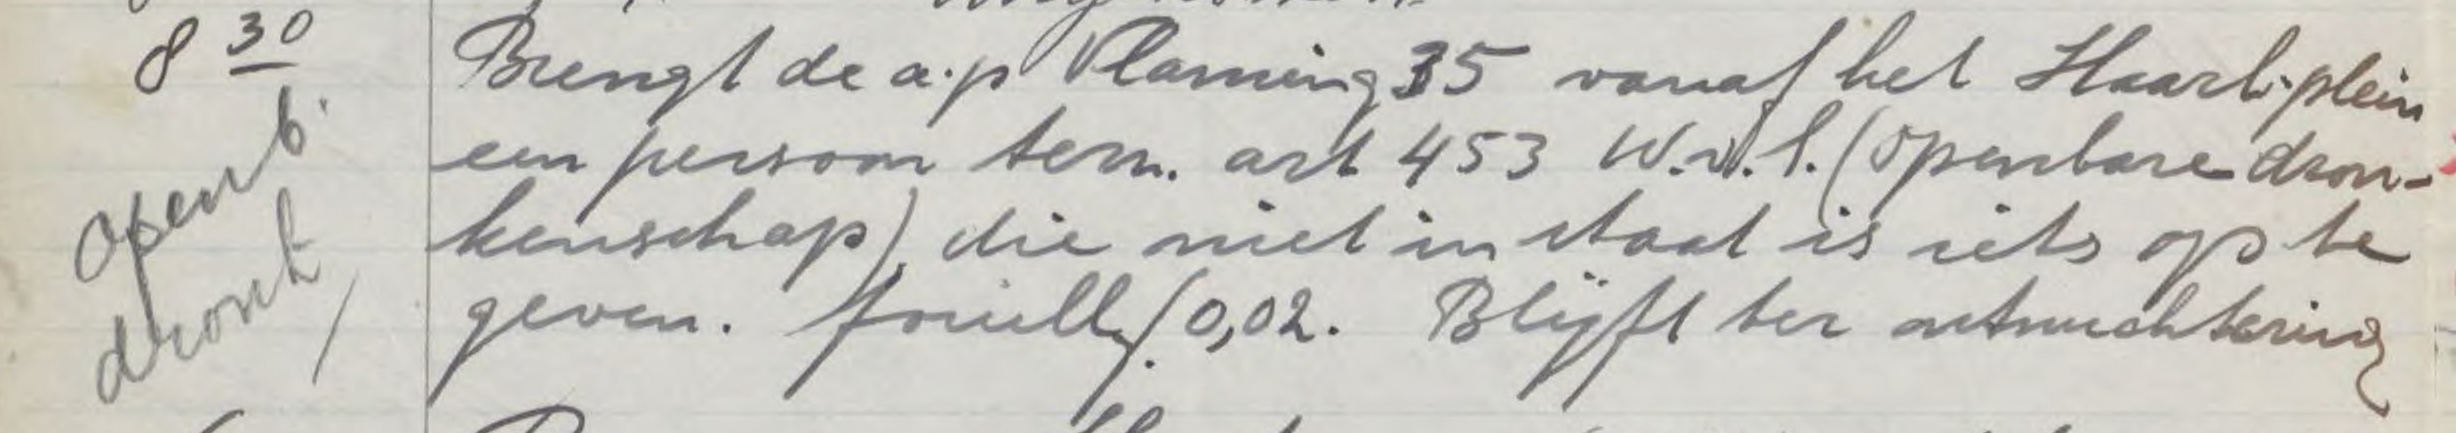 8 30
Brengt de a.p Vlaming 35 vanaf het Haarl. plein
een persoon term. art 453 W.v.S. (openbare dron-
kenschap), die niet in staat is iets op te
geven. fouill. f. 0,02. Blijft ter ontnuchtering
openb.
dronk,